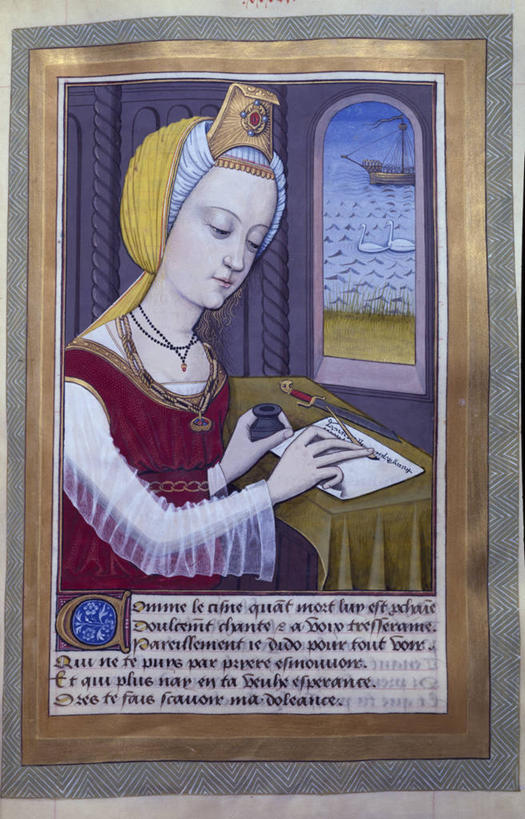 Comme le cisne quāt mort luy est pchaīe
Doulcemt chante & a voix tresseraine.
Pareillement ie dido pour tout voir.
Qui ne te puys par pryere esmouuoir.
Et qui plus nay en ta veuhe esperance.
Ores te fais scauoir ma doleance.